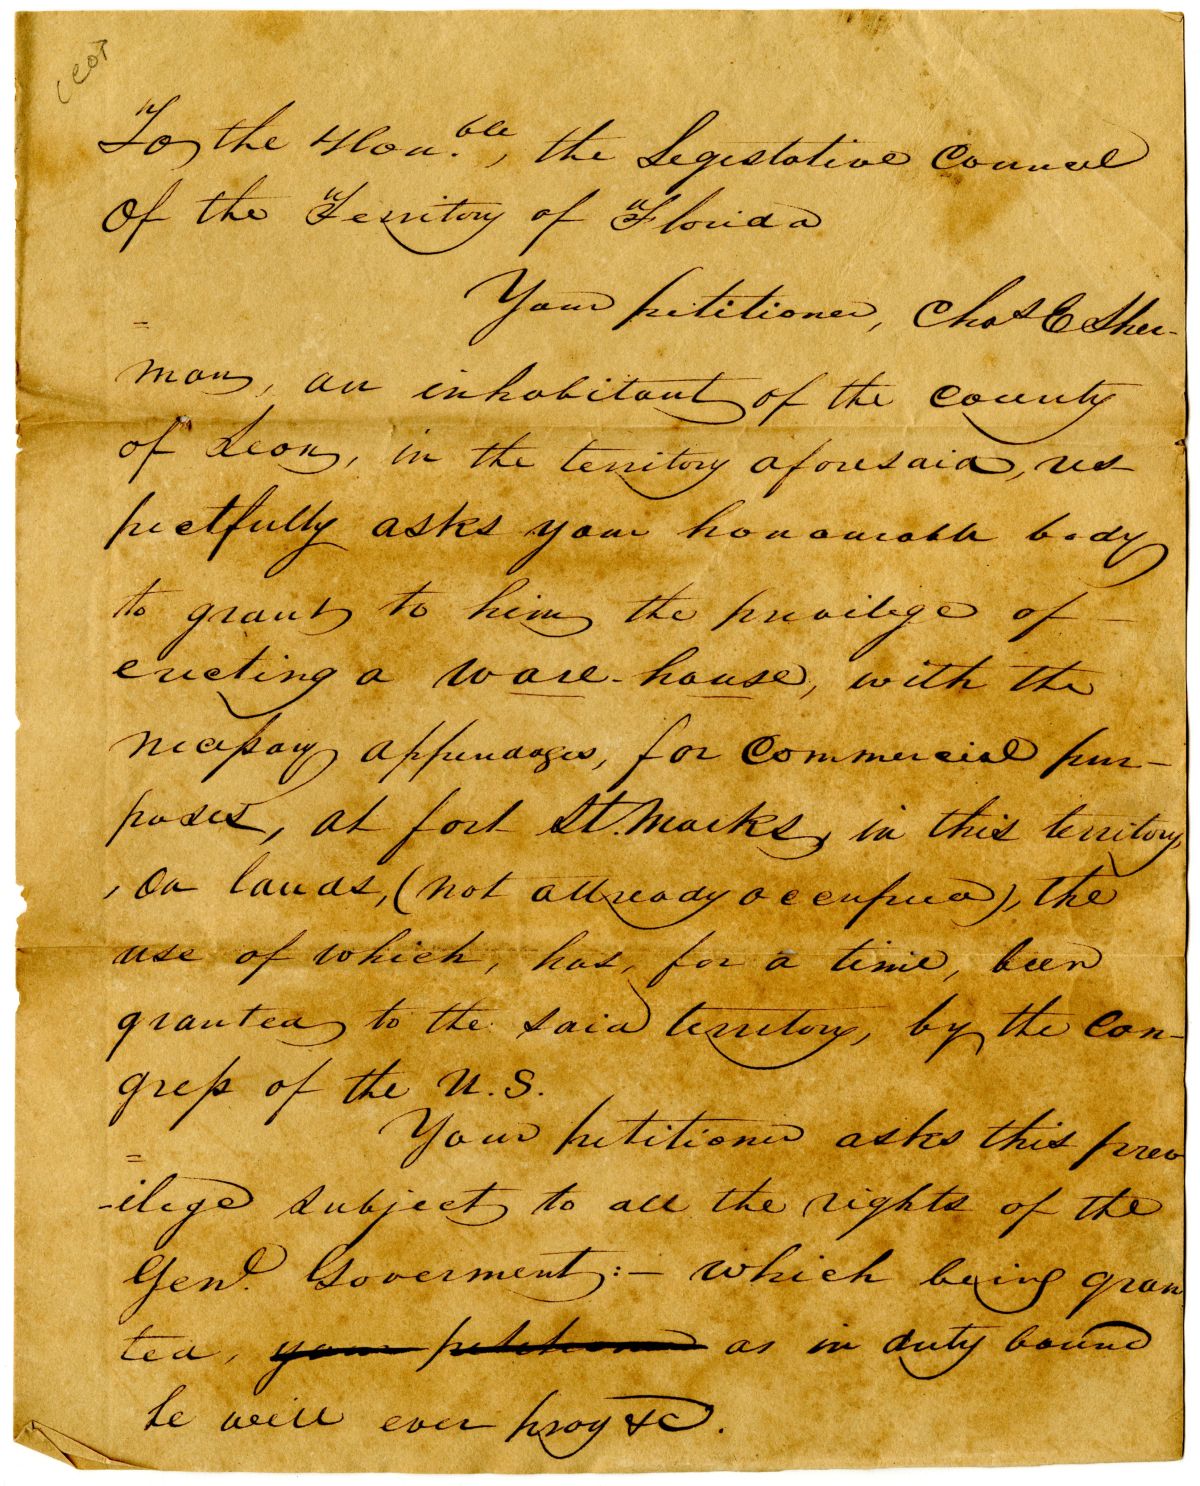 To the Hon.ble, the Legislative Council
Of the Territory of Florida
Your petitioner, Chas E Sher-
man, an inhabitant of the county
of Leon, in the territory aforesaid, res
pectfully asks your honourable body
to grant to him the privilege of –
erecting a ware-house, with the
necessary appendages, for commercial pur-
poses, at fort St. Marks, in this territory,
, on lands, (not allready occupied), the
use of which, has, for a time, been
granted to the said territory, by the Con-
gress of the U.S.
Your petitioner asks this priv
-ilege subject to all the rights of the
Genl. Goverment:– which being gran
ted, your petitioner as in duty bound
he will ever pray &c.